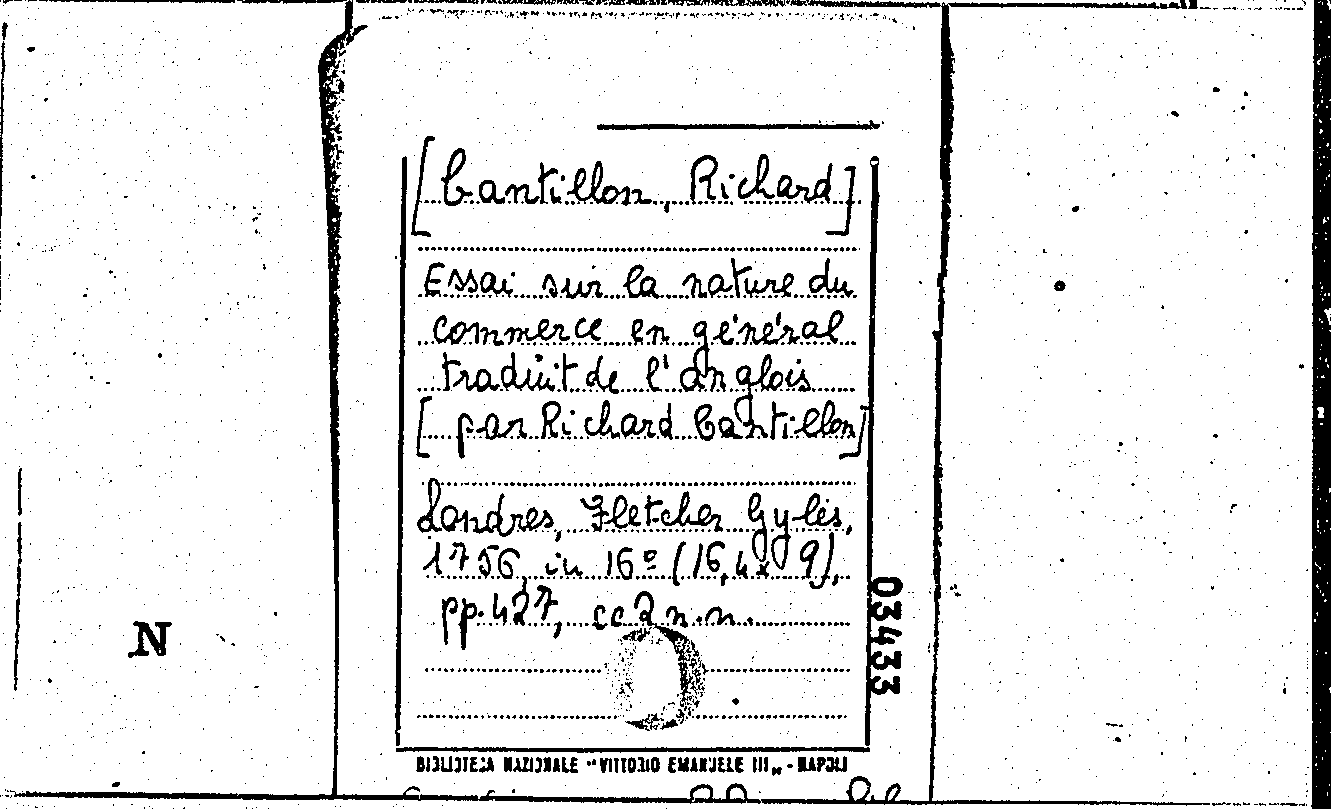 [Cantillon, Richard]
Essai sur la nature du
commerce en général
traduit de l'anglois
[par Richard Cantillon]
Londres, Fletcher Gyles,
1756, in 16º (16,4x9),
pp. 427, cc 2 n.n.
03433
N
BIBLIOTECA NAZIONALE "VITTORIO EMANUELE III" - NAPOLI